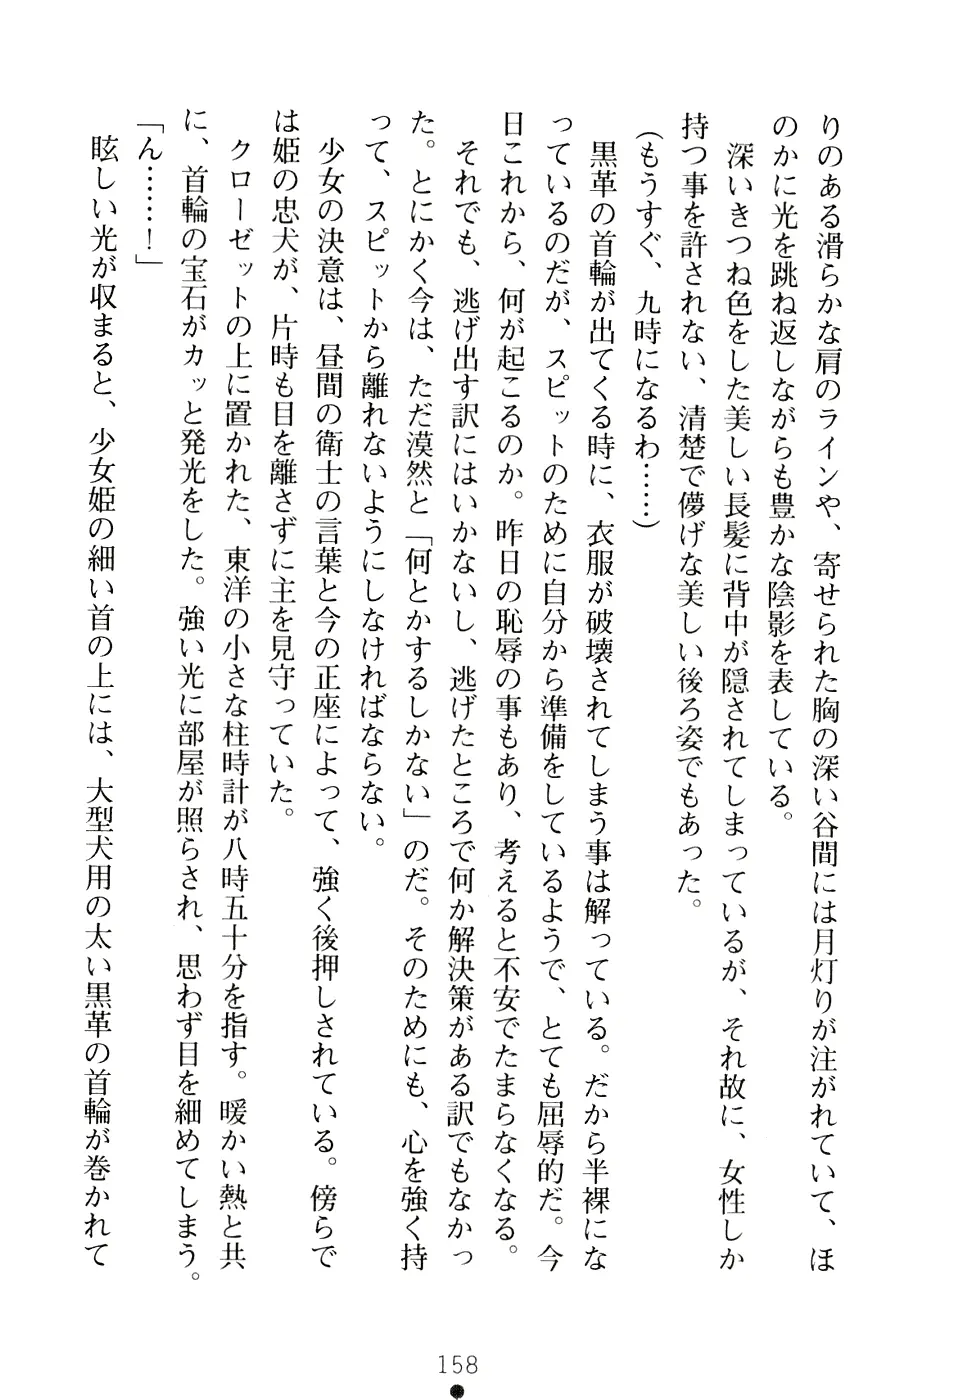 りのある滑らかな肩のラインや、寄せられた胸の深い谷間には月灯りが注がれていて、ほ
のかに光を跳ね返しながらも豊かな陰影を表している。
深いきつね色をした美しい長髪に背中が隠されてしまっているが、それ故に、女性しか
持つ事を許されない、清楚で儚げな美しい後ろ姿でもあった。
(もうすぐ、九時になるわ……)
黒革の首輪が出てくる時に、衣服が破壊されてしまう事は解っている。だから半裸にな
っているのだが、スピットのために自分から準備をしているようで、とても屈辱的だ。今
日これから、何が起こるのか。昨日の恥辱の事もあり、考えると不安でたまらなくなる。
それでも、逃げ出す訳にはいかないし、逃げたところで何か解決策がある訳でもなかっ
た。とにかく今は、ただ漠然と「何とかするしかない」のだ。そのためにも、心を強く持
って、スピットから離れないようにしなければならない。
少女の決意は、昼間の衛士の言葉と今の正座によって、強く後押しされている。傍らで
は姫の忠犬が、片時も目を離さずに主を見守っていた。
クローゼットの上に置かれた、東洋の小さな柱時計が八時五十分を指す。暖かい熱と共
に、首輪の宝石がカッと発光をした。強い光に部屋が照らされ、思わず目を細めてしまう。
「ん……！」
眩しい光が収まると、少女姫の細い首の上には、大型犬用の太い黒革の首輪が巻かれて
158